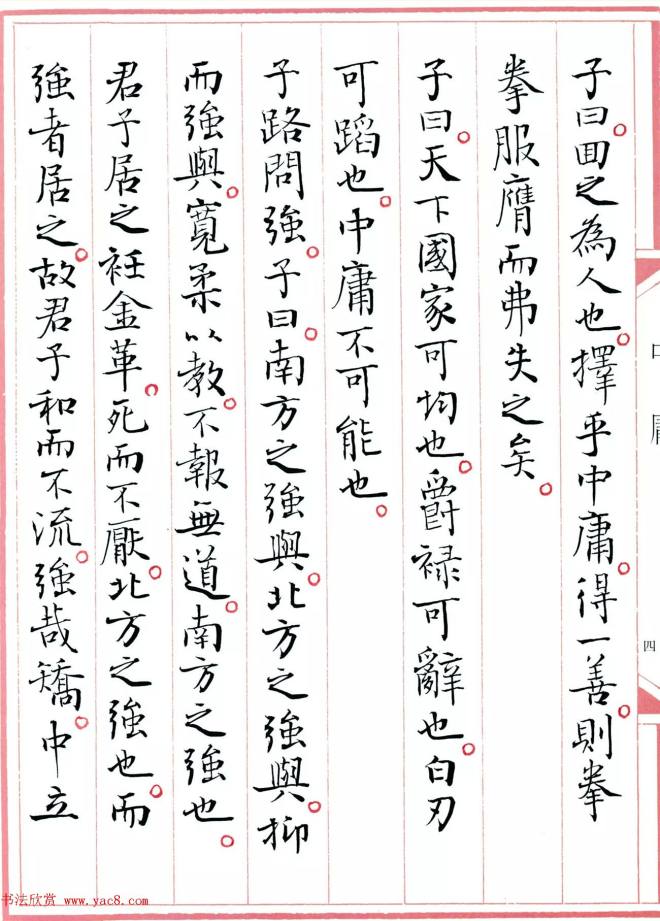 中庸
四
子曰。回之為人也。擇乎中庸。得一善。則拳
拳服膺而弗失之矣。
子曰。天下國家可均也。爵祿可辭也。白刃
可蹈也。中庸不可能也。
子路問強。子曰。南方之強與。北方之強與。抑
而強與。寬柔以教。不報無道。南方之強也。
君子居之衽金革。死而不厭。北方之強也。而
強者居之。故君子和而不流。強哉矯。中立
书法欣赏 www.yac8.com